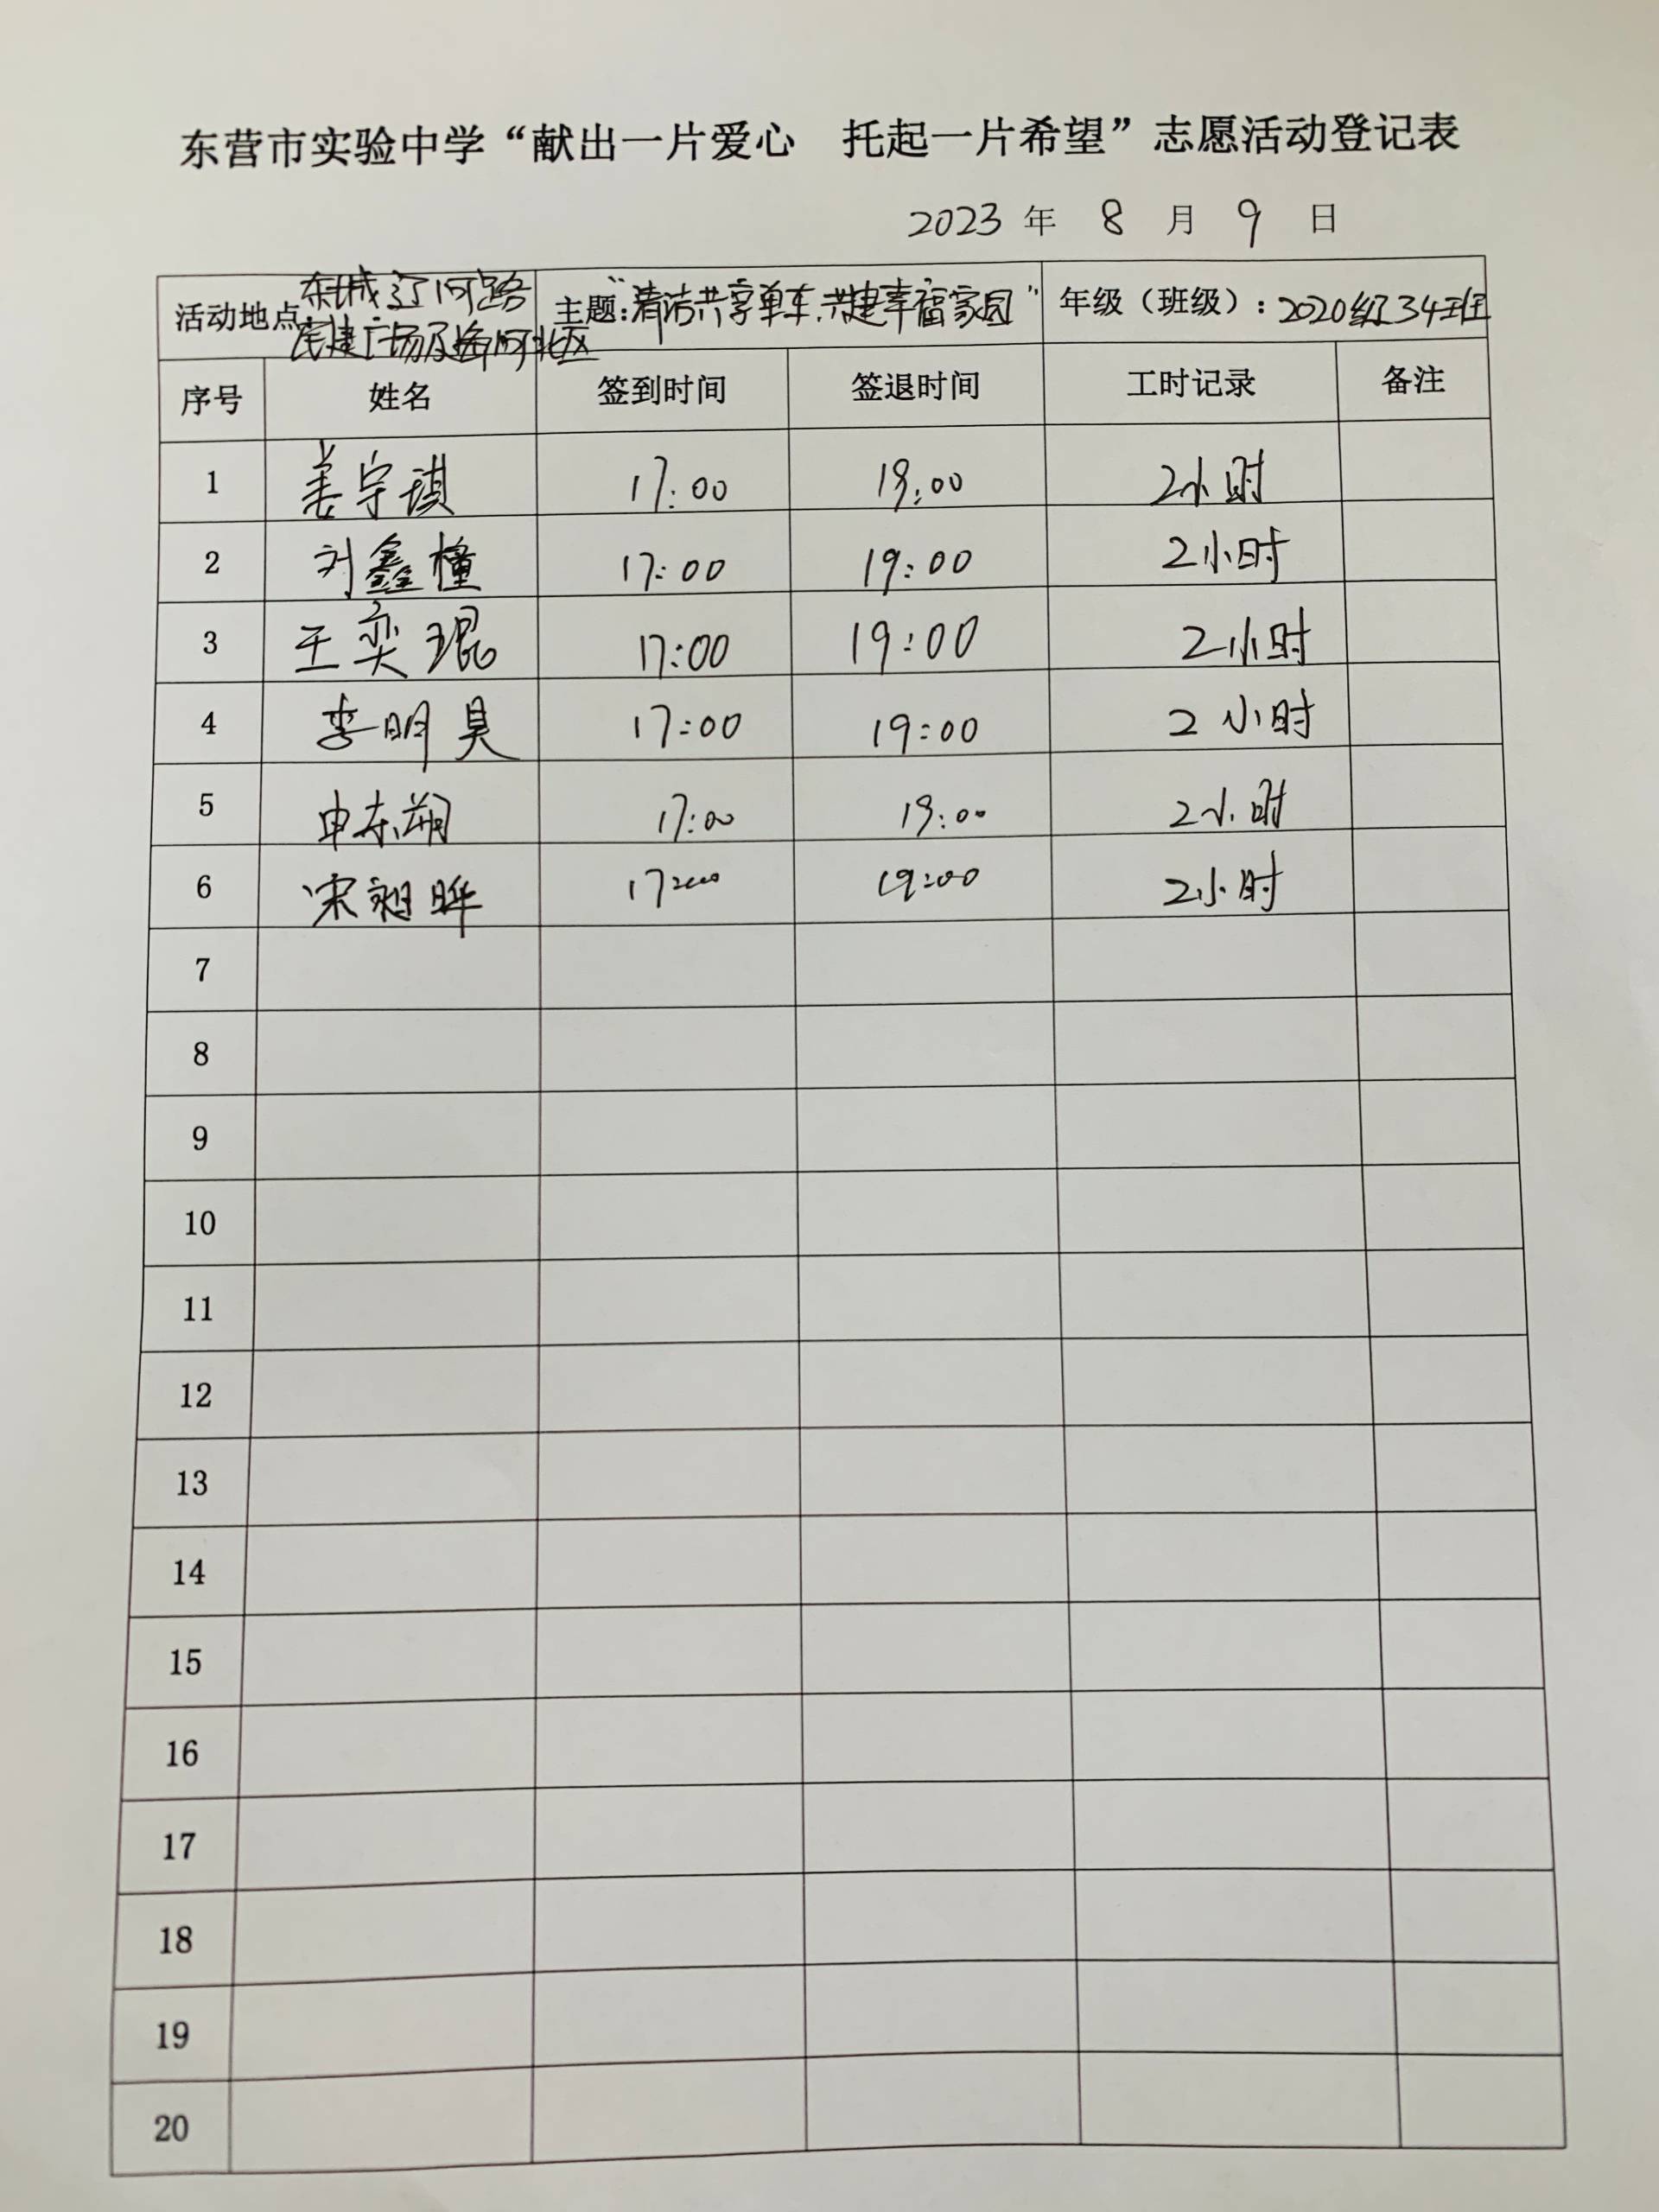 东营市实验中学“献出一片爱心 托起一片希望”志愿活动登记表
2023 年 8 月 9 日
活动地点: 东城辽河路 主题:“清洁共享单车,共建幸福家园” 年级(班级):2020级34班
民建广场及海河北区
序号 姓名 签到时间 签退时间 工时记录 备注
1 姜宇琪 17:00 19:00 2小时
2 刘鑫橦 17:00 19:00 2小时
3 王奕琨 17:00 19:00 2小时
4 李明昊 17:00 19:00 2小时
5 申东朔 17:00 19:00 2小时
6 宋昶晔 17:00 19:00 2小时
7
8
9
10
11
12
13
14
15
16
17
18
19
20